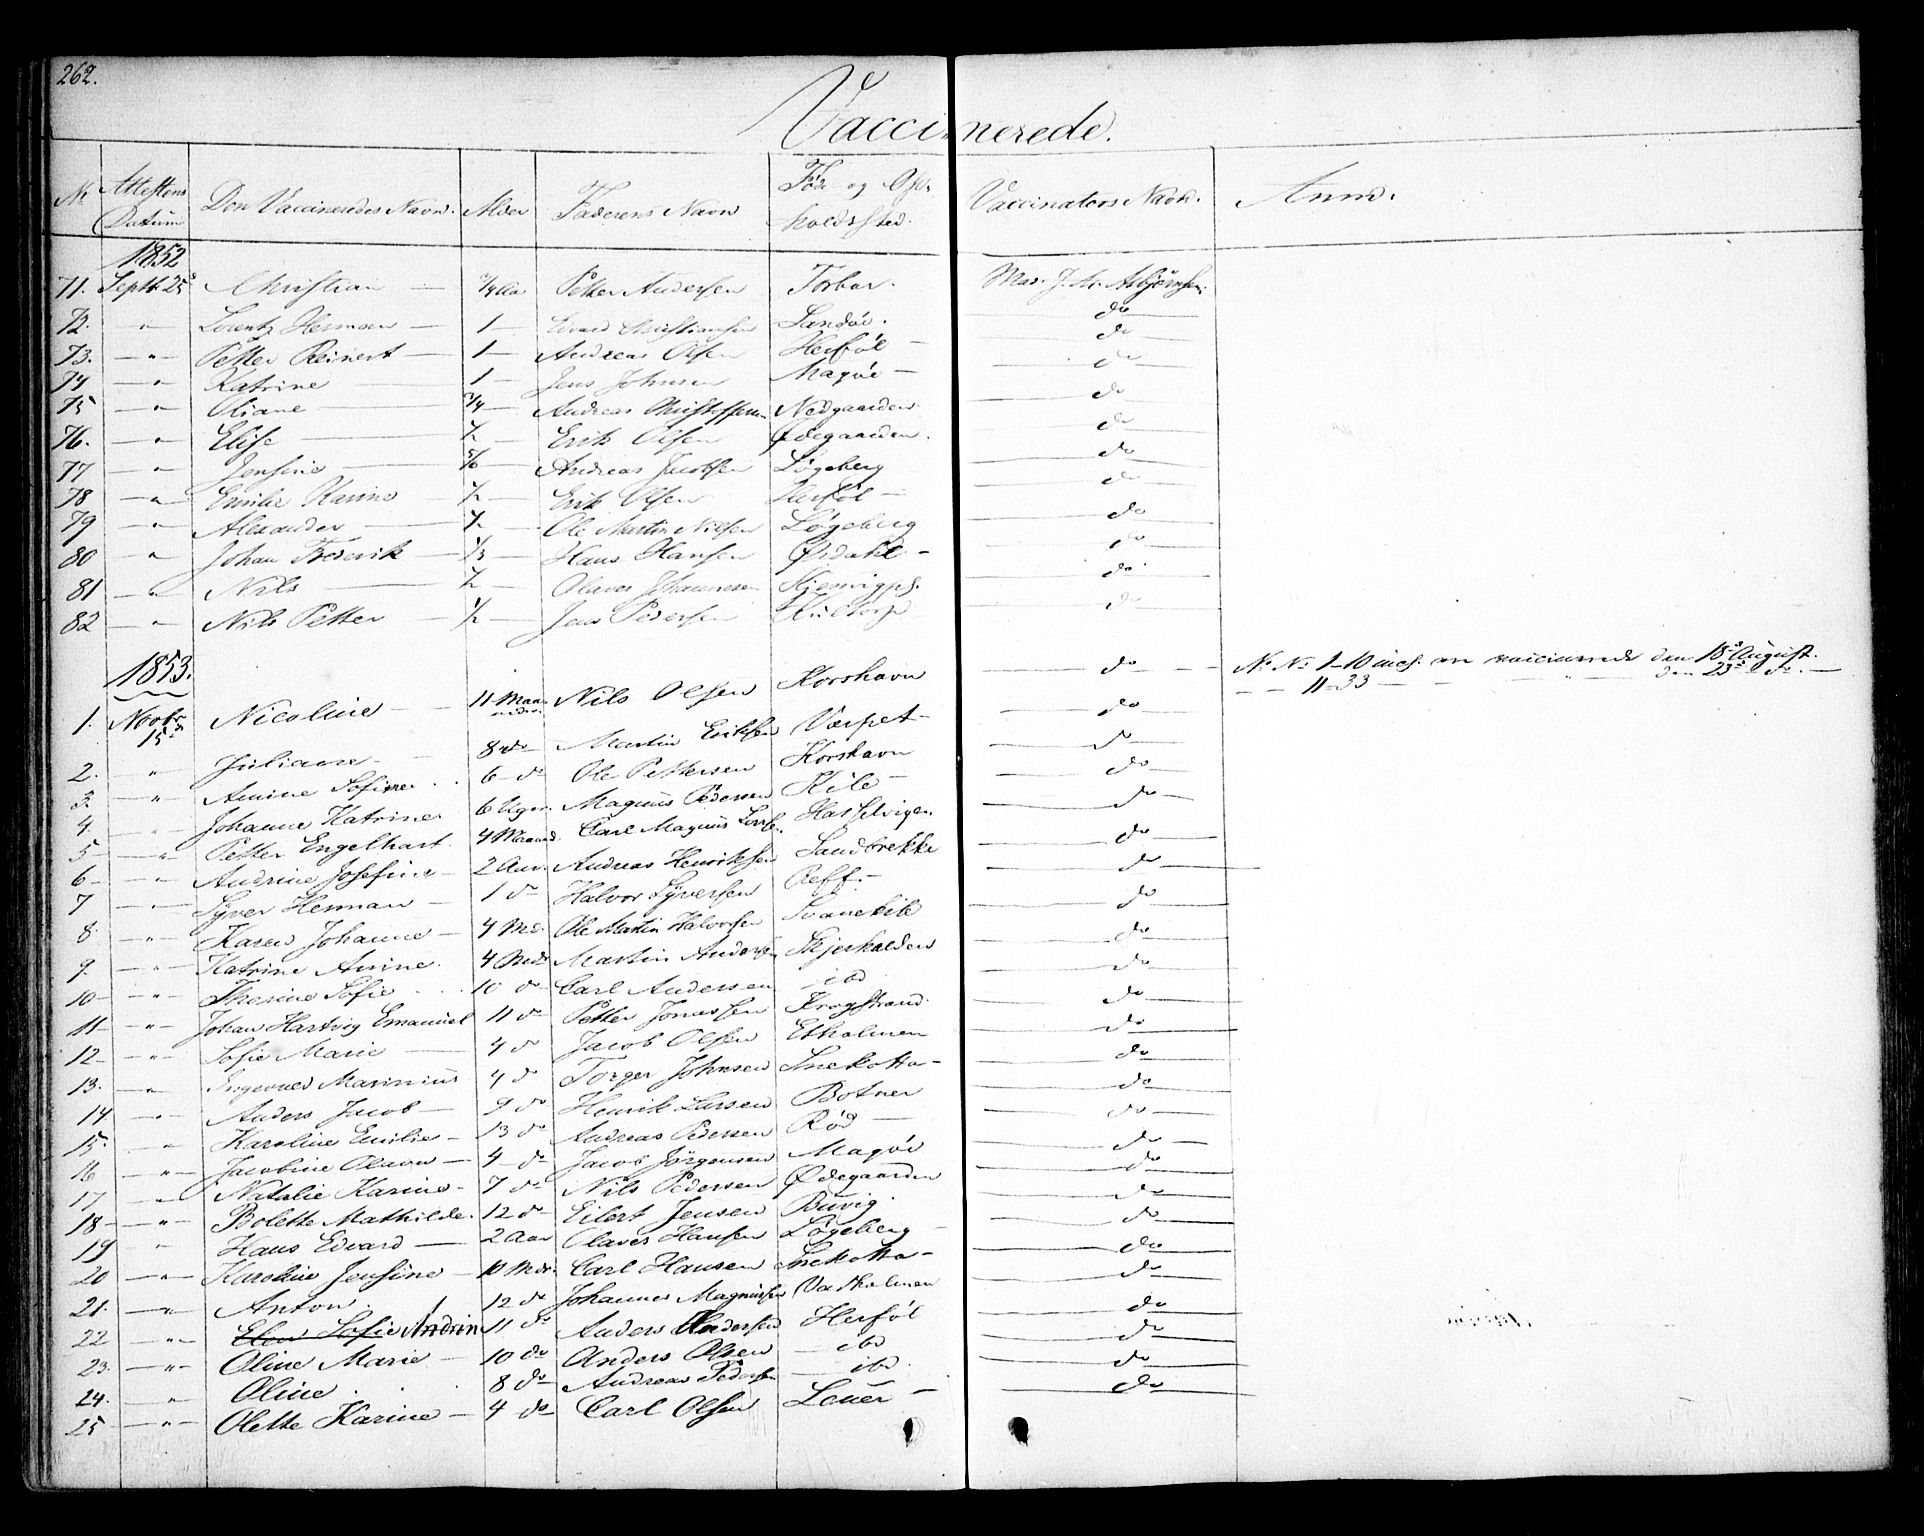 262.
Vaccinerede.
No Attestens Datum Den Vaccineredes Navn. Alder Faderens Navn Føde og Opholdssted. Vaccinators Navn. Anm.
1852
71. Septbr 25 Christian — 3/4 Aar Petter Andersen Torbar. Mad. J. M. Asbjørnsen
72. " Lorentz Herman — 1 — Edvard Christiansen Sandøe. do
73. — " — Petter Reinert — 1 — Andreas Olsen Herføl — do
74 — " — Katrine 1 — Jens Johnsen Magøe — do
75 — " — Oliane — 3/4 — Andreas Christoffersen Nedgaarden do
76. — " Elise — 1/2 — Erik Olsen Ødegaarden. do
77 — " — Jensine — 5/6 — Andreas Jacobsen Løgeberg do
78 — " — Emilie Karine — 1/2 — Erik Olsen Herføl — do
79 — " — Alexander — 1/2 — Ole Martin Nilsen Løgeberg do
80 — " Johan Frederik — 1/3 — Hans Hansen Ørdahl — do
81 — " — Nils — 1/2 — Olaves Johannesen Kjenvigpl. do
82 — " Nils Petter — 1/2 — Jens Pedersen Kultorp do
1853.
1. Novbr 15 Nicoline — 11 Maaneder. Nils Olsen Korshavn — do — No No 1–10 incl. ere vaccinerede den 18de August.
— — 11–33 — " — den 23de do. —
2. " Juliane — 8 do Martin Eriksen Værpet — do
3. — " Amine Sofine 6 — do Ole Pettersen Korshavn do
4. " Johanne Katrine 6 Uger. Magnus Pedersen Kile — do
5 — " — Petter Engelhart. 4 Maaned. Carl Magnus Hasselvigen do
6 — " — Andrine Josefine — 2 Aar. Andreas Henriksen Sandbrekke do
7 — " — Syver Herman — 1 do Halvor Syversen Reff. — do
8. — " — Karen Johanne — 4 Md. Ole Martin Halvorsen Svanekile do
9. — " — Katrine Amine. 4 Mdr Martin Andersen Skjerhalden do
10 — " — Thorine Sofie . . 10 do Carl Andersen — ibd do
11 — " — Johan Hartvig Emanuel 11 do Petter Jonassen Krogstrand do
12 — " — Sofie Marie — 4 do Jacob Olsen Etholmen do
13. — " Ingevald Marinius 4 do Torger Johnsen Snekotta — do
14 — " — Anders Jacob — 9 do Henrik Larsen Botner do
15. " Karoline Emilie — 13 do Andreas Pedersen Rød — do
16 — " — Jacobine Olava — 4 — do Jacob Jörgensen Magøe do
17 — " — Natalie Karine — 7 do Nils Pedersen Ødegaarden do
18 — " — Bolette Mathilde. 12 do Eilert Jensen Buvig do
19 " Hans Edvard — 2 Aar Olaves Hansen Løgeberg — do
20 — " — Karoline Jensine — 10 Mdr. Carl Hansen Snekotta — do
21. — " — Anton. 12 do Johannes Magnussen Vadholmen do
22 — " — Elen Sofie Andrin 11 do Anders Andersen Herføl do
23. — " — Oline Marie — 10 do Anders Olsen — ibd do
24. — " Oline . 8 do Andreas Pedersen — ibd. do
25 — " — Olette Karine — 4 do Carl Olsen Lauer — do